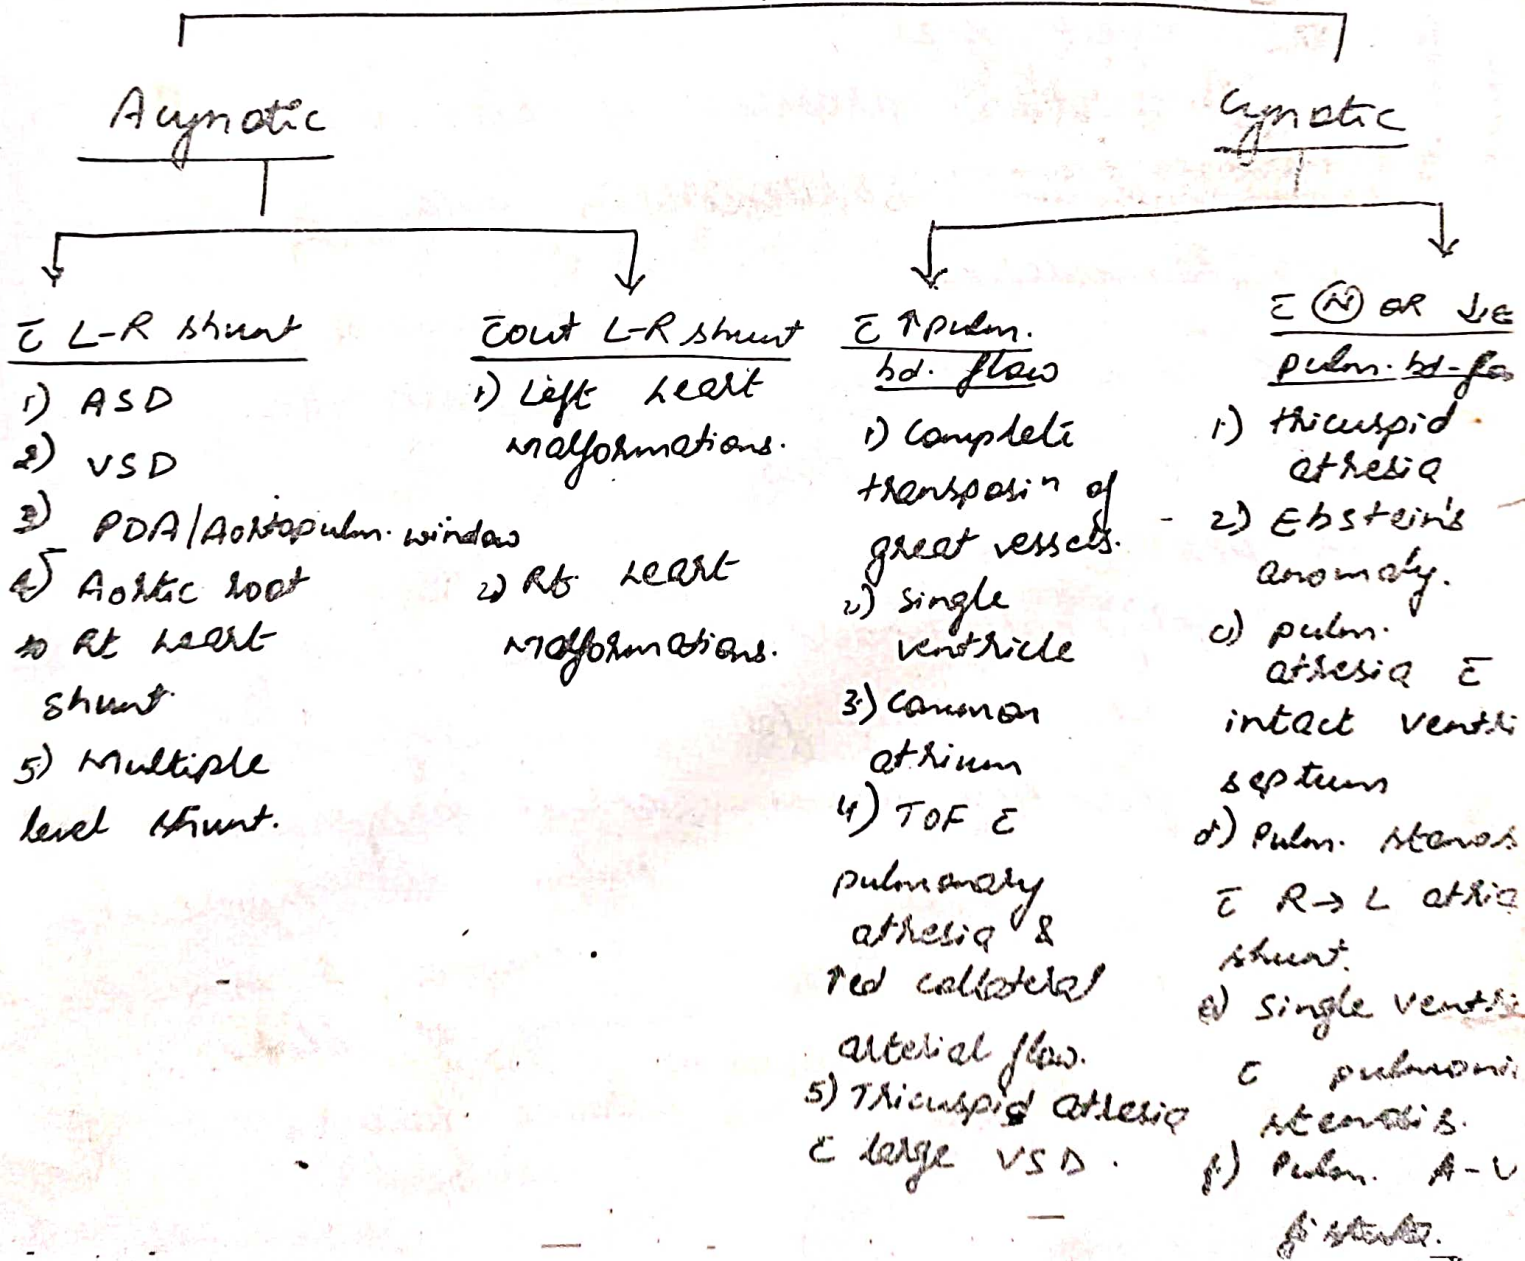 Acynotic
Cynotic
c̄ L-R shunt
1) ASD
2) VSD
3) PDA/Aortopulm. window
4) Aortic root
to Rt heart
shunt
5) Multiple
level shunt.
c̄out L-R shunt
1) Left heart
malformations.
2) Rt. heart
malformations.
c̄ ↑ pulm.
bd. flow
1) Complete
transposiⁿ of
great vessels.
2) single
ventricle
3) Common
atrium
4) TOF c̄
pulmonary
atresia &
↑ed collateral
arterial flow.
5) Tricuspid atresia
c̄ large VSD.
c̄ Ⓝ OR ↓e
pulm. bd-flo
1) tricuspid
atresia
2) Ebstein's
anomaly.
c) pulm.
atresia c̄
intact ventri
septum
d) Pulm. stenos
c̄ R→L atria
shunt.
e) Single ventri
c̄ pulmoni
stenosis.
f) Pulm. A-V
fistula.